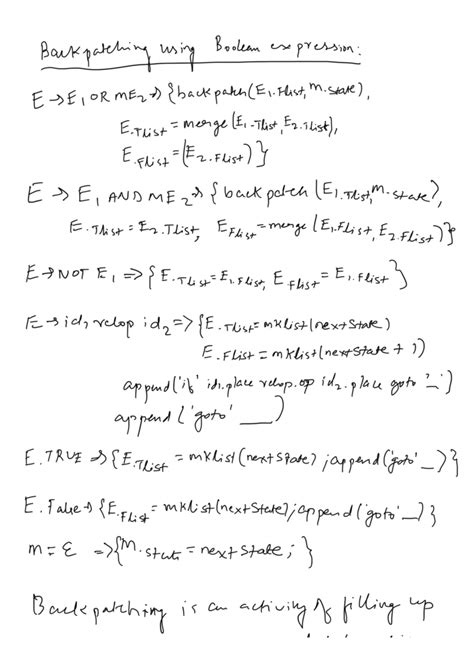 Backpatching using Boolean expression:
E → E₁ OR ME₂ → {backpatch(E₁.Flist, m.state),
E.Tlist = meerge(E₁.Tlist, E₂.Tlist),
E.Flist = (E₂.Flist)}
E → E₁ AND ME₂ → {backpatch(E₁.Tlist, m.state),
E.Tlist = E₂.Tlist, E Flist = merge(E₁.Flist, E₂.Flist)}
E → NOT E₁ => {E.Tlist = E₁.Flist, E Flist = E₁.Flist}
E → id₁ relop id₂ => {E.Tlist = mklist(next state)
E.Flist = mklist(next state + 1)
append('if' id₁.place relop.op id₂.place goto '_')
append('goto' ___)
E.TRUE → {E.Tlist = mklist(next state); append('goto' _)}
E.False → {E.Flist = mklist(next state); append('goto' _)}
m = ε => {M.state = next state; }
Backpatching is an activity of filling up